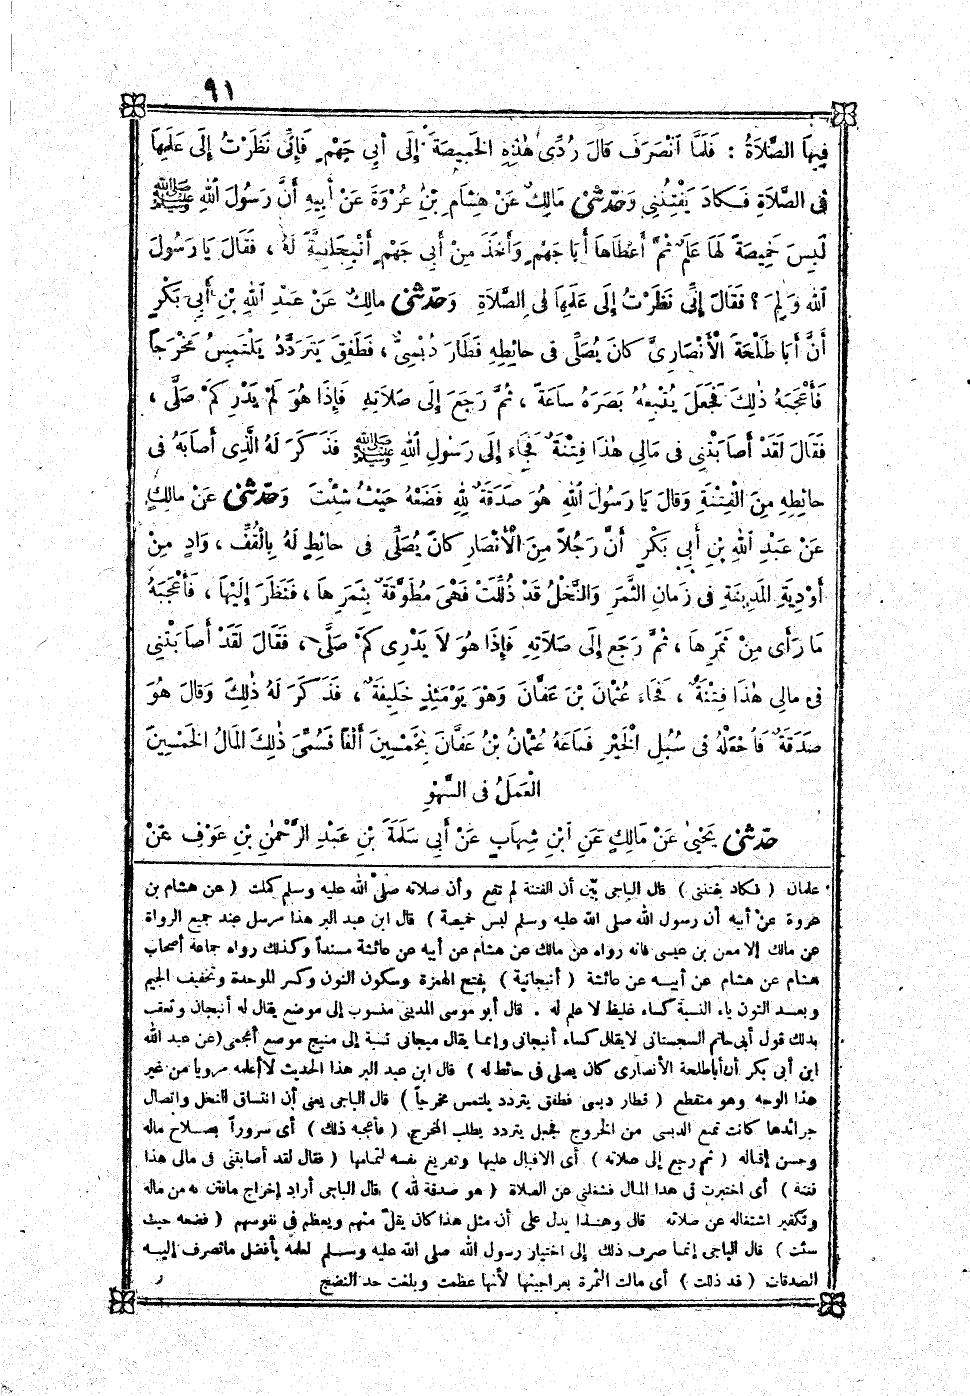 ٩١
فِيهَا الصَّلَاةُ : فَلَمَّا اَنْصَرَفَ قَالَ رُدِّى هٰذِهِ الْخَمِيصَةَ إِلَى أَبِي جَهْمٍ فَإِنِّى نَظَرْتُ إِلَى عَلَمِهَا
فِى الصَّلَاةِ فَكَادَ يَفْتِنُنِى وَحَدَّثَنِى مَالِكٌ عَنْ هِشَامِ بْنِ عُرْوَةَ عَنْ أَبِيهِ أَنَّ رَسُولَ اللهِ ﷺ
لَبِسَ خَمِيصَةً لَهَا عَلَمٌ ثُمَّ أَعْطَاهَا أَبَا جَهْمٍ وَأَخَذَ مِنْ أَبِي جَهْمٍ أَنْبِجَانِيَّةً لَهُ ، فَقَالَ يَا رَسُولَ
اللهِ وَلِمَ ؟ فَقَالَ إِنِّى نَظَرْتُ إِلَى عَلَمِهَا فِى الصَّلَاةِ وَحَدَّثَنِى مَالِكٌ عَنْ عَبْدِ اللهِ بْنِ أَبِى بَكْرٍ
أَنَّ أَبَا طَلْحَةَ الْأَنْصَارِىَّ كَانَ يُصَلِّى فِى حَائِطِهِ فَطَارَ دُبْسِىٌّ ، فَطَفِقَ يَتَرَدَّدُ يَلْتَمِسُ مَخْرَجاً
فَأَعْجَبَهُ ذٰلِكَ فَجَعَلَ يُتْبِعُهُ بَصَرَهُ سَاعَةً ، ثُمَّ رَجَعَ إِلَى صَلَاتِهِ فَإِذَا هُوَ لَمْ يَدْرِ كَمْ صَلَّى ،
فَقَالَ لَقَدْ أَصَابَتْنِى فِى مَالِى هٰذَا فِتْنَةٌ فَجَاءَ إِلَى رَسُولِ اللهِ ﷺ فَذَكَرَ لَهُ الَّذِى أَصَابَهُ فِى
حَائِطِهِ مِنَ الْفِتْنَةِ وَقَالَ يَا رَسُولَ اللهِ هُوَ صَدَقَةٌ لِلهِ فَضَعْهُ حَيْثُ شِئْتَ وَحَدَّثَنِى عَنْ مَالِكٍ
عَنْ عَبْدِ اللهِ بْنِ أَبِي بَكْرٍ أَنَّ رَجُلاً مِنَ الْأَنْصَارِ كَانَ يُصَلِّى فِى حَائِطٍ لَهُ بِالْقُفِّ ، وَادٍ مِنْ
أَوْدِيَةِ الْمَدِينَةِ فِى زَمَانِ الثَّمَرِ وَالنَّخْلُ قَدْ ذُلِّلَتْ فَهْىَ مُطَوَّقَةٌ بِثَمَرِهَا ، فَنَظَرَ إِلَيْهَا ، فَأَعْجَبَهُ
مَا رَأَى مِنْ ثَمَرِهَا ، ثُمَّ رَجَعَ إِلَى صَلَاتِهِ فَإِذَا هُوَ لَا يَدْرِى كَمْ صَلَّى ، فَقَالَ لَقَدْ أَصَابَتْنِى
فِى مَالِى هٰذَا فِتْنَةٌ ، فَجَاءَ عُثْمَانَ بْنَ عَفَّانَ وَهْوَ يَوْمَئِذٍ خَلِيفَةٌ ، فَذَكَرَ لَهُ ذٰلِكَ وَقَالَ هُوَ
صَدَقَةٌ فَاجْعَلْهُ فِى سُبُلِ الْخَيْرِ فَبَاعَهُ عُثْمَانُ بْنُ عَفَّانَ بِخَمْسِينَ أَلْفاً فَسُمِّىَ ذٰلِكَ الْمَالُ الْخَمْسِينَ
الْعَمَلُ فِى السَّهْوِ
حَدَّثَنِى يَحْيَى عَنْ مَالِكٍ عَنِ ابْنِ شِهَابٍ عَنْ أَبِي سَلَمَةَ بْنِ عَبْدِ الرَّحْمٰنِ بْنِ عَوْفٍ عَنْ
علمان ( فكاد يفتننى ) قال الباجى بيّن أن الفتنة لم تقع وأن صلاته صلى الله عليه وسلم كملت ( عن هشام بن
عروة عن أبيه أن رسول الله صلى الله عليه وسلم لبس خميصة ) قال ابن عبد البر هذا مرسل عند جميع الرواة
عن مالك إلا معن بن عيسى فانه رواه عن مالك عن هشام عن أبيه عن عائشة مسنداً وكذلك رواه جماعة أصحاب
هشام عن هشام عن أبيه عن عائشة ( أنبجانية ) بفتح الهمزة وسكون النون وكسر الموحدة وتخفيف الجيم
وبعد النون ياء النسبة كساء غليظ لا علم له . قال أبو موسى المدينى منسوب إلى موضع يقال له أنبجان وتعقب
بذلك قول أبى حاتم السجستانى لا يقال كساء أنبجانى وإنما يقال منبجانى نسبة إلى منبج موضع أعجمى ( عن عبد الله
ابن أبى بكر أن أبا طلحة الأنصارى كان يصلى فى حائط له ) قال ابن عبد البر هذا الحديث لا أعلمه مروياً من غير
هذا الوجه وهو منقطع ( فطار دبسى فطفق يتردد يلتمس مخرجاً ) قال الباجى يعنى أن اتساق النخل واتصال
جرائدها كانت تمنع الدبسى من الخروج فجعل يتردد يطلب المخرج ( فأعجبه ذلك ) أى سروراً بصلاح ماله
وحسن إقباله ( ثم رجع إلى صلاته ) أى الاقبال عليها وتفريغ نفسه لتمامها ( فقال لقد أصابتنى فى مالى هذا
فتنة ) أى اختبرت فى هذا المال فشغلنى عن الصلاة ( هو صدقة لله ) قال الباجى أراد إخراج مافتن به من ماله
وتكفير اشتغاله عن صلاته قال وهذا يدل على أن مثل هذا كان يقلّ منهم ويعظم فى نفوسهم ( فضعه حيث
شئت ) قال الباجى إنما صرف ذلك إلى اختيار رسول الله صلى الله عليه وسلم لعلمه بأفضل ماتصرف إليه
الصدقات ( قد ذللت ) أى مالت الثمرة بعراجينها لأنها عظمت وبلغت حد النضج